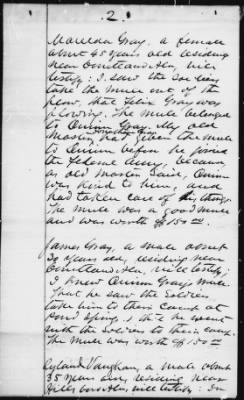 2
Gray, a female
about 45 years old residing
near Courtland Ala, will
testify: I saw the Soldiers
take the mule out of the
plow, that Felix Gray was
plowing. The mule belonged
to Quinn Gray. My old
Master, had given the mule
to Quinn before he joined
the Federal Army, because
as old Master said, Quinn
was kind to him, and
had taken care of his things.
The mule was a good mule
and was worth $150 00
James Gray, a male about
30 years old, residing near
Courtland Ala, will testify;
I knew Quinn Gray's mule
That he saw the Soldiers
take him to their Camp at
Pond Spring. That he went
with the Soldiers to their camp.
The mule was worth $150 00
Vaughan, a male about
35 years old, residing near
Hillsboro Ala, will testify: In